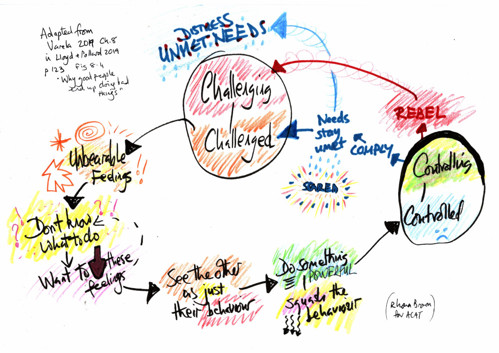 Adapted from
Varela 2019 Ch.8
in Lloyd & Pollard 2019
p 123 Fig 8.4
"Why good people
end up doing bad
things"
DISTRESS
UNMET NEEDS
Challenging
Challenged
Needs
stay
unmet
SCARED
REBEL
COMPLY
Controlling
Controlled
Unbearable
Feelings
Don't know
what to do
Want to these
feelings
See the other
as just
their behaviour
Do something
POWERFUL
Squash the
behaviour
(Rhona Brown
for ACAT)